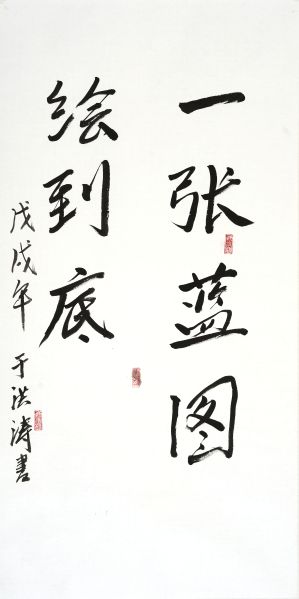 一张蓝图
绘到底
戊戌年 于洪涛书